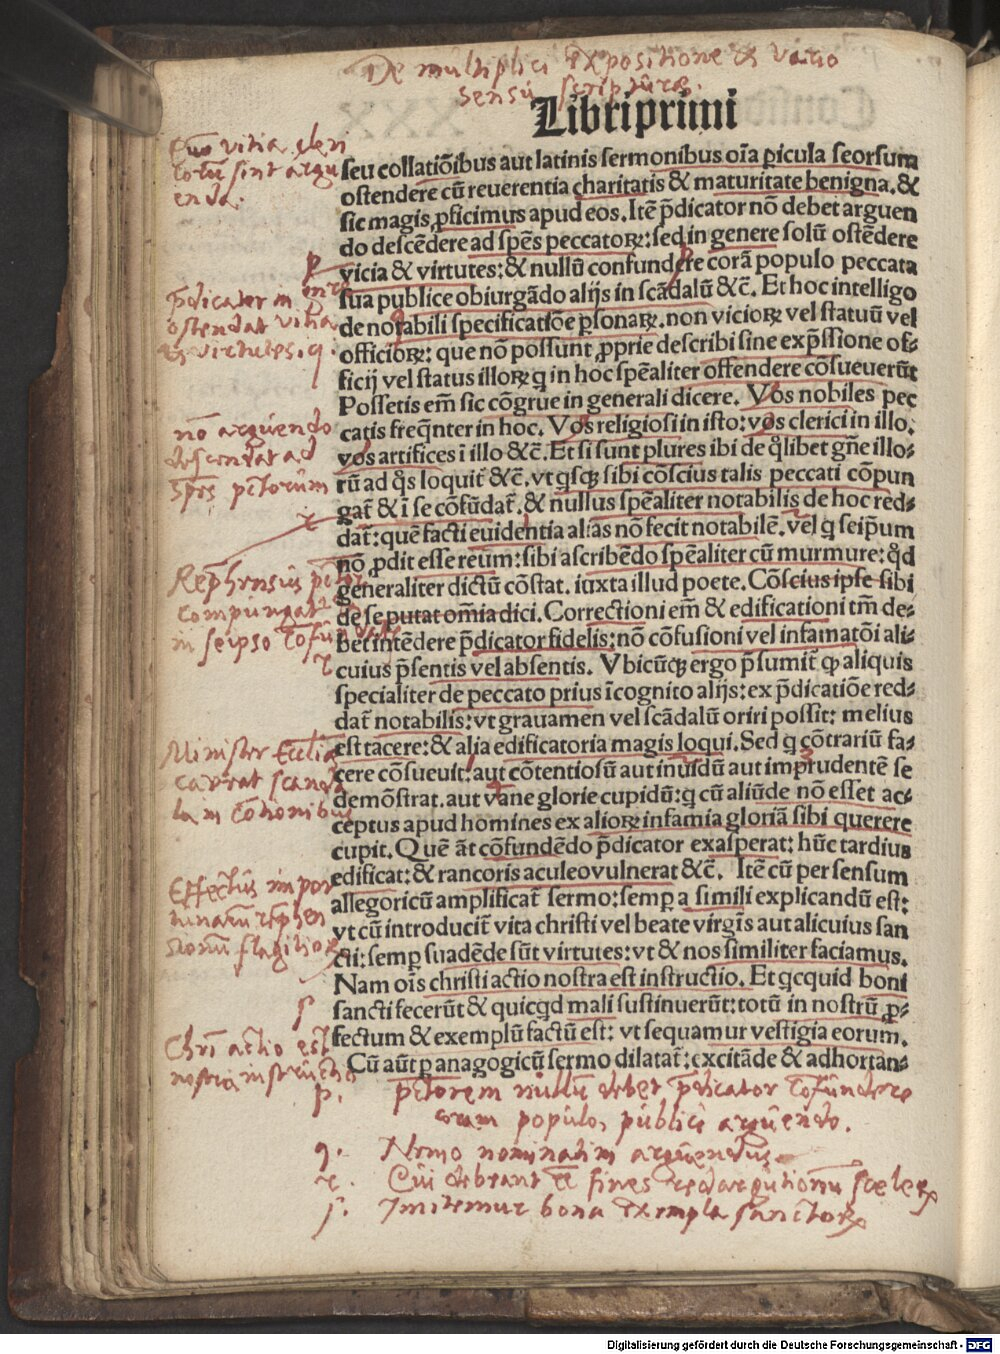 De multiplici Expositione & vario
sensu scripturae.
Libri primi
Quo vitia cleri
corum sint argu
enda.
seu collatiōibus aut latinis sermonibus oīa ꝑicula seorsum
ostendere cū reuerentia charitatis & maturitate benigna. &
sic magis ꝓficimus apud eos. Itē p̄dicator nō debet arguen
do descēdere ad spēs peccatoꝝ: sed in genere solū ostēdere
vicia & virtutes: & nullū confundere corā populo peccata
sua publice obiurgādo alijs in scādalū &c̄. Et hoc intelligo
de notabili specificatiōe ꝑsonaꝝ. non vicioꝝ vel statuū vel
officioꝝ: que nō possunt ꝓprie describi sine exp̄ssione of⸗
ficij vel status illoꝝ q in hoc spēaliter offendere cōsueuerūt
Possetis em̄ sic cōgrue in generali dicere. Vos nobiles pec
catis freq̄nter in hoc. Vos religiosi in isto: vos clerici in illo.
vos artifices ī illo &c̄. Et si sunt plures ibi de q̄libet gn̄e illo⸗
rū ad q̄s loquit̄ &c̄. vt qsꝗ sibi cōscius talis peccati cōpun
gat̄ & ī se cōfūdat̄. & nullus spēaliter notabilis de hoc red⸗
dat̄: quē facti euidentia alias nō fecit notabilē. vel q seip̄um
nō ꝓdit esse reum: sibi ascribēdo spēaliter cū murmure: q̄d
generaliter dictū cōstat. iuxta illud poete. Cōscius ipse sibi
de se putat om̄ia dici. Correctioni em̄ & edificationi tm̄ de⸗
bet intēdere p̄dicator fidelis: nō cōfusioni vel infamatōi ali⸗
cuius p̄sentis vel absentis. Vbicūꝗ ergo p̄sumit̄ ꝙ aliquis
specialiter de peccato prius īcognito alijs: ex p̄dicatiōe red⸗
dat̄ notabilis: vt grauamen vel scādalū oriri possit: melius
est tacere: & alia edificatoria magis loqui. Sed q cōtrariū fa⸗
cere cōsueuit: aut cōtentiosū aut inuidū aut imprudentē se
demōstrat. aut vane glorie cupidū: q cū aliūde nō esset ac⸗
ceptus apud homines ex alioꝝ infamia gloriā sibi querere
cupit. Quē āt cōfundēdo p̄dicator exasperat: hūc tardius
edificat: & rancoris aculeo vulnerat &c̄. Itē cū per sensum
allegoricū amplificat̄ sermo: semꝑ a simili explicandū est:
vt cū introducit̄ vita christi vel beate virgīs aut alicuius san
cti: semꝑ suadēde sūt virtutes: vt & nos similiter faciamus.
Nam oīs christi actio nostra est instructio. Et qcquid boni
sancti fecerūt & quicqd mali sustinuerūt: totū in nostrū ꝓ⸗
fectum & exemplū factū est: vt sequamur vestigia eorum.
Cū aūt ꝑ anagogicū sermo dilatat̄: excitāde & adhortan⸗
p̄dicator in gn̄re
ostendat vitia
& virtutes. q.
nō arguendo
descendat ad
spēs pctorum
Rephensus pctor
compungat̄
in seipso
Minister Eccliae
caveat scanda
la in
Effectus impor
tunarum rephen
sionum flagitioꝝ
Chri actio est
nostra instructio
p. pctorem nullū debet p̄dicator cōfundere
coram populo, publice arguendo.
q. Nemo nominatim arguendus
r. Cui debeant ēē fines redargutionum sceleꝝ
s. Imitemur bona Exempla sanctoꝝ
Digitalisierung gefördert durch die Deutsche Forschungsgemeinschaft - DFG